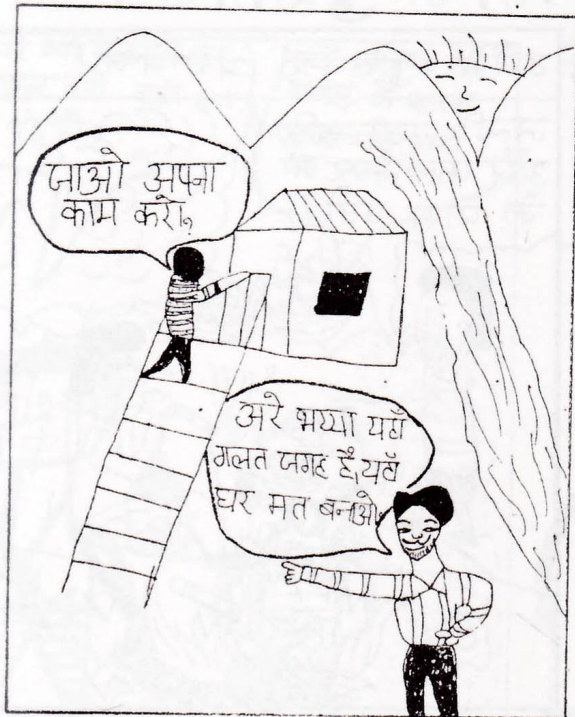 जाओ अपना
काम करो,
अरे भय्या यहाँ
गलत जगह है, यहाँ
घर मत बनाओ,